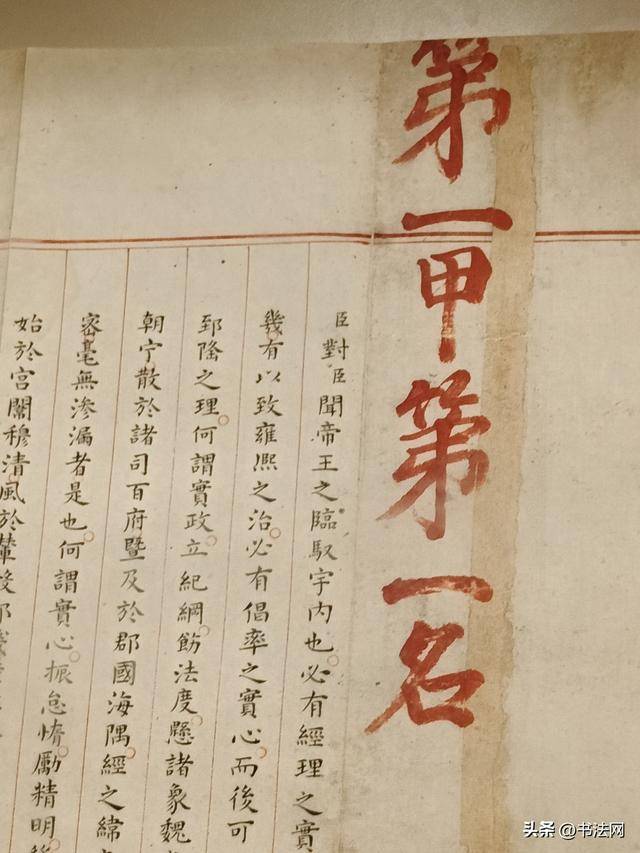 第一甲第一名
臣對臣聞帝王之臨馭宇內也必有經理之實
幾有以致雍熙之治必有倡率之實心而後可
郅隆之理何謂實政立紀綱飭法度懸諸象魏
朝宁散於諸司百府暨及於郡國海隅經之緯
密毫無滲漏者是也何謂實心振怠惰勵精明
始於宮闈穆清風於輦
头条 @书法网